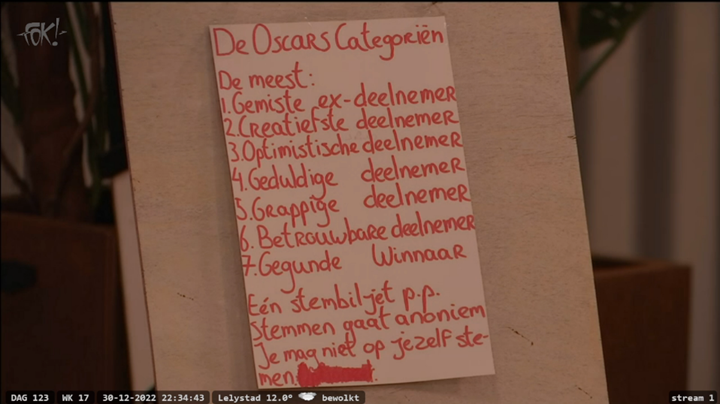 FOK!
De Oscars Categoriën
De meest:
1. Gemiste ex-deelnemer
2. Creatiefste deelnemer
3. Optimistische deelnemer
4. Geduldige deelnemer
5. Grappige deelnemer
6. Betrouwbare deelnemer
7. Gegunde Winnaar
Eén stembiljet p.p.
Stemmen gaat anoniem
Je mag niet op jezelf ste-
men
DAG 123 WK 17 30-12-2022 22:34:43 Lelystad 12.0° bewolkt stream 1